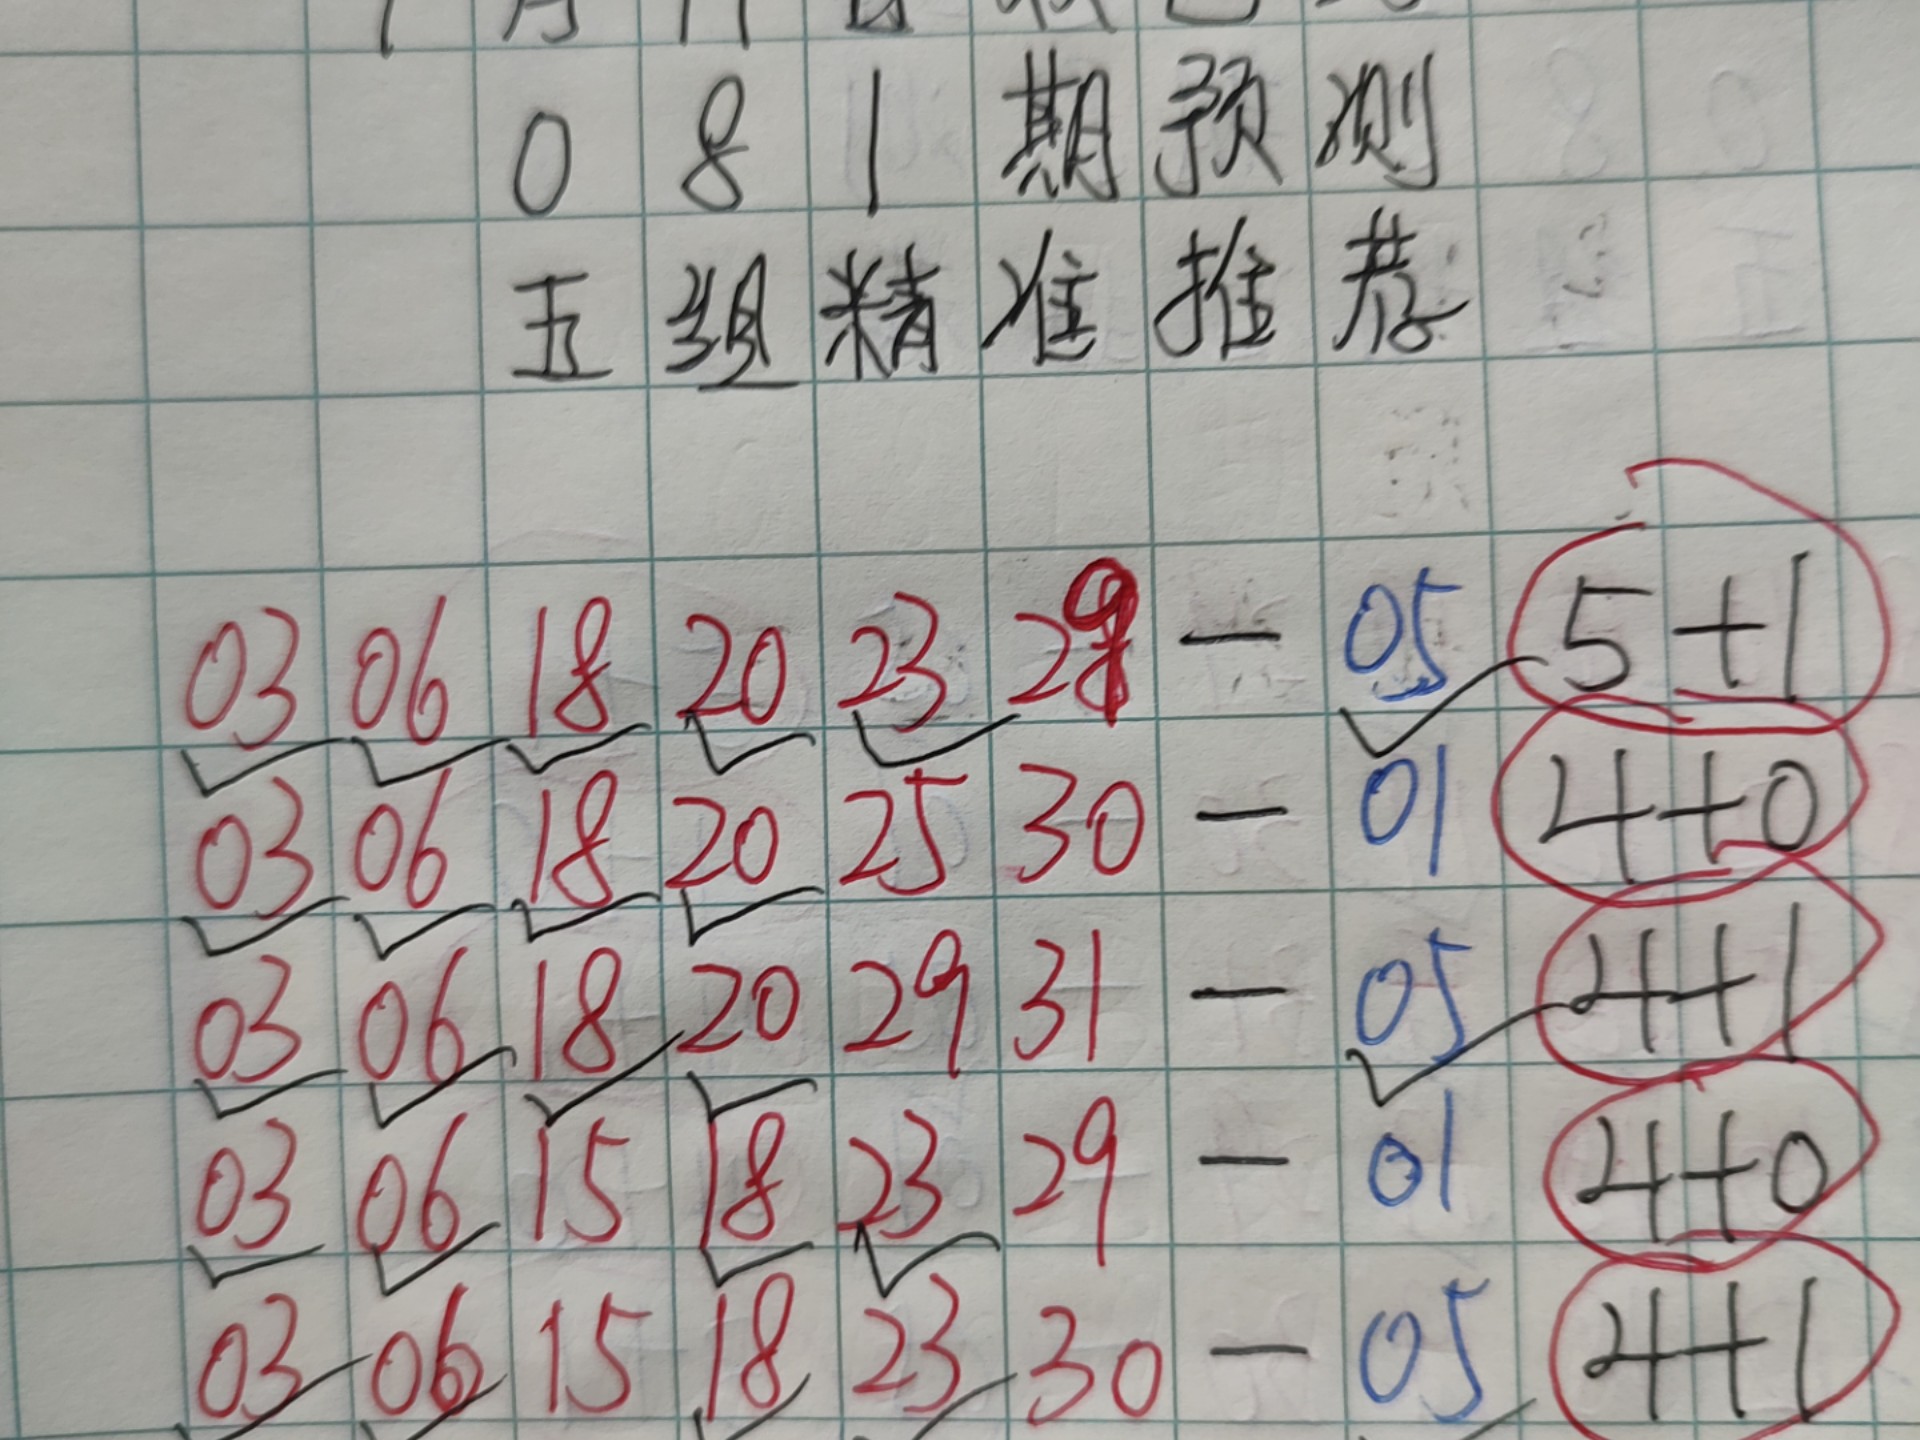 081期预测
五组精准推荐
03 06 18 20 23 29 — 05 5+1
03 06 18 20 25 30 — 01 4+0
03 06 18 20 29 31 — 05 4+1
03 06 15 18 23 29 — 01 4+0
03 06 15 18 23 30 — 05 4+1